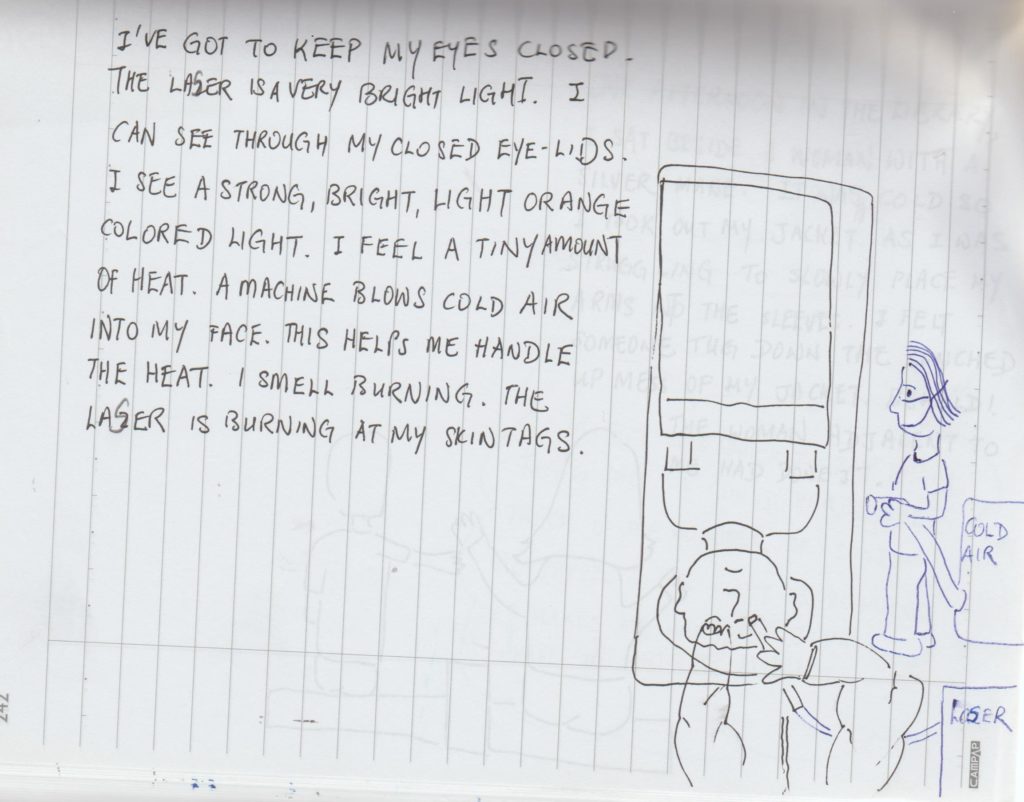 I'VE GOT TO KEEP MY EYES CLOSED.
THE LASER IS A VERY BRIGHT LIGHT. I
CAN SEE THROUGH MY CLOSED EYE-LIDS.
I SEE A STRONG, BRIGHT, LIGHT ORANGE
COLORED LIGHT. I FEEL A TINY AMOUNT
OF HEAT. A MACHINE BLOWS COLD AIR
INTO MY FACE. THIS HELPS ME HANDLE
THE HEAT. I SMELL BURNING. THE
LASER IS BURNING AT MY SKIN TAGS.
COLD
AIR
LASER
CAMPAP
242